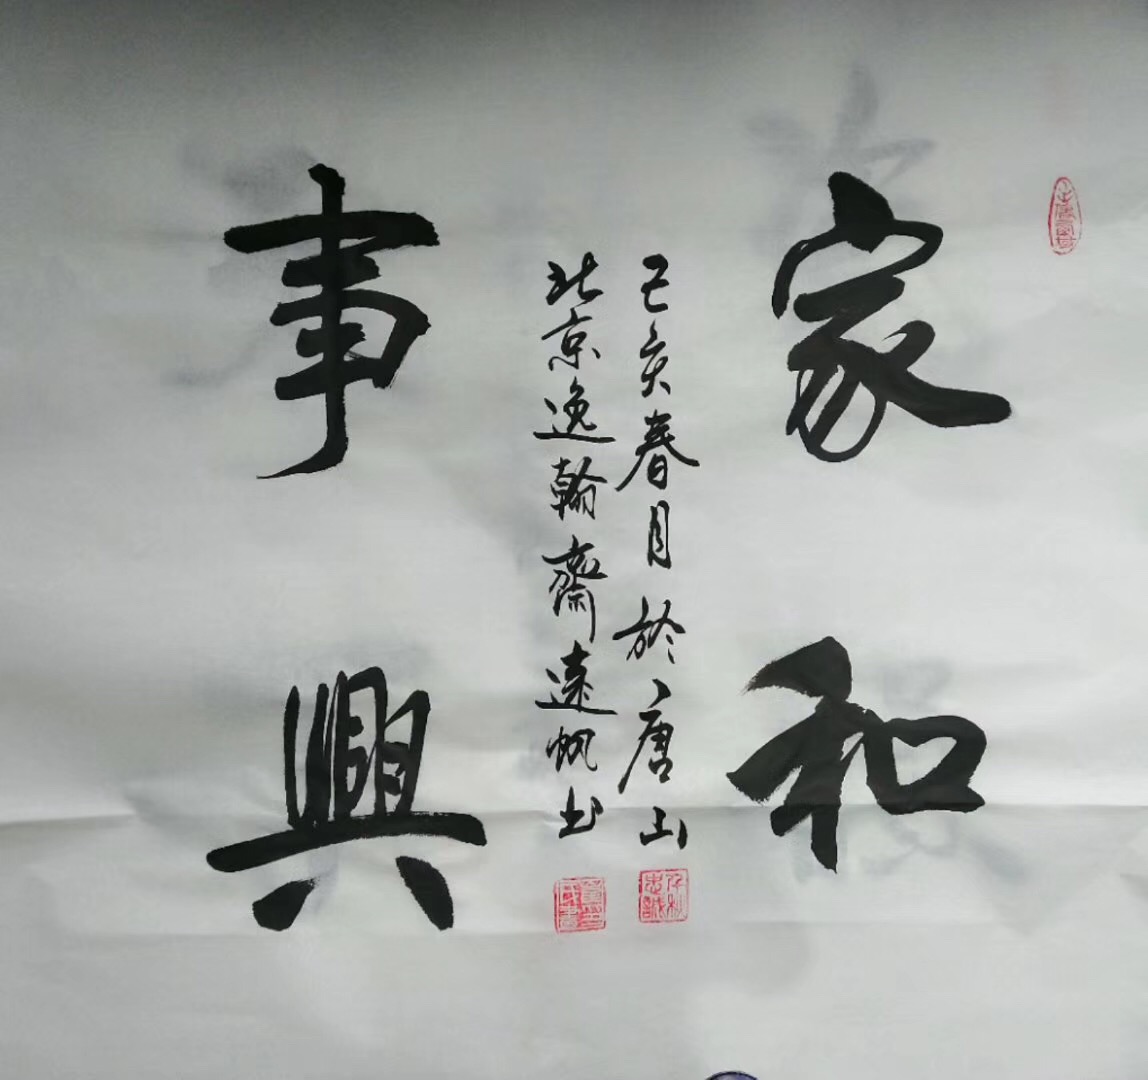 家和
己亥春月於唐山
北京逸翰齋遠帆书
事興